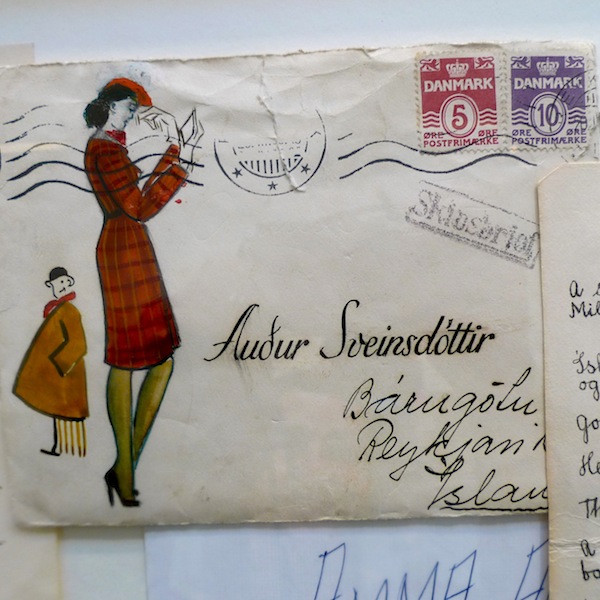 DANMARK
5
ØRE ØRE
POSTFRIMÆRKE
DANMARK
10
ØRE ØRE
POSTFRIMÆRKE
Skibsbrief
Auður Sveinsdóttir
Bárugötu
Reykjavik
Íslan
A
Mil
Ísl
og
Go
He
Th
A
bo
ANNA